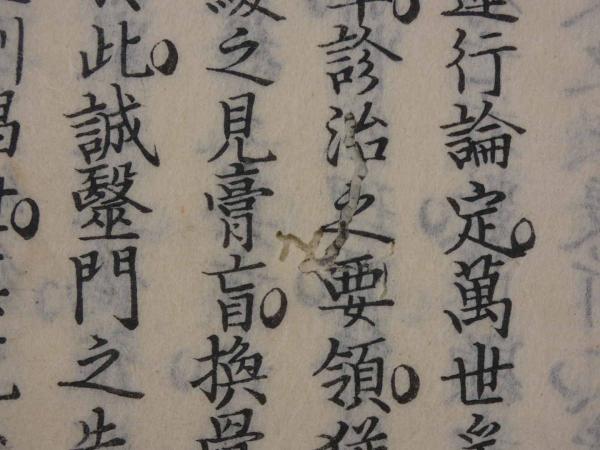 行論定。萬世
診治之要領。
之見膏盲。換骨
此。誠毉門之